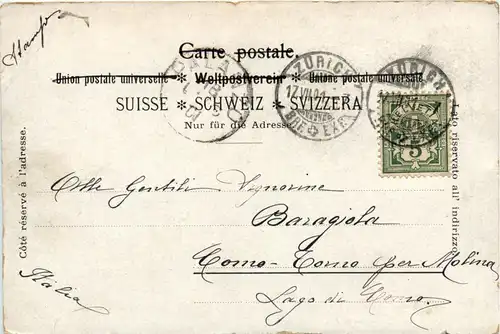 Stampe
Carte postale.
Union postale universelle * Weltpostverein * Unione postale universale
SUISSE * SCHWEIZ * SVIZZERA
Nur für die Adresse.
ZÜRICH
17.VII.01
BRF. EXP.
ZÜRICH
5
Côté réservé à l'adresse.
Lato riservato all' indirizzo.
Alle Gentili Signorine
Baragiola
Como-Torno per Molina
Lago di Como.
Italia